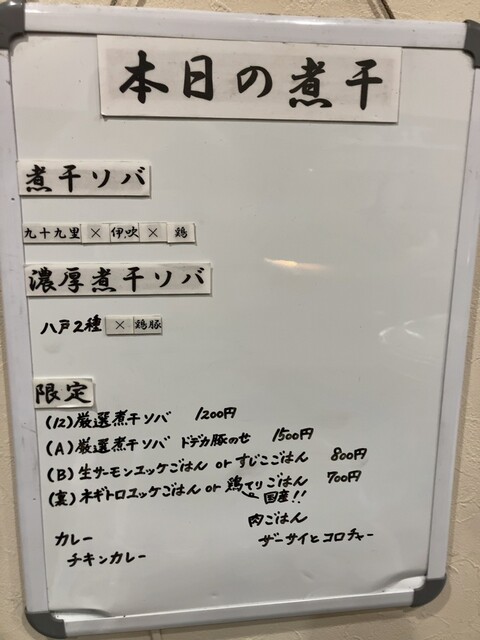 本日の煮干
煮干ソバ
九十九里 × 伊吹 × 鶏
濃厚煮干ソバ
八戸2種 × 鶏豚
限定
(12) 厳選煮干ソバ 1200円
(A) 厳選煮干ソバ ドデカ豚のせ 1500円
(B) 生サーモンユッケごはん or すじこごはん 800円
(裏) ネギトロユッケごはん or 鶏てりごはん 700円
国産!!
肉ごはん
カレー ザーサイとコロチャー
チキンカレー